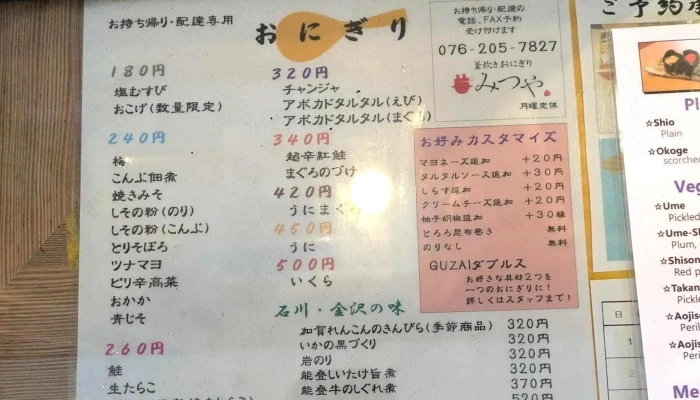 お持ち帰り・配達専用
おにぎり
180円
塩むすび
おこげ(数量限定)
240円
梅
こんぶ佃煮
焼きみそ
しその粉(のり)
しその粉(こんぶ)
とりそぼろ
ツナマヨ
ピリ辛高菜
おかか
青じそ
260円
鮭
生たらこ
320円
チャンジャ
アボカドタルタル(えび)
アボカドタルタル(まぐろ)
340円
超辛紅鮭
まぐろのづけ
420円
うにまぐ
450円
うに
500円
いくら
石川・金沢の味
加賀れんこんのきんぴら(季節商品) 320円
いかの黒づくり 320円
岩のり 320円
能登しいたけ旨煮 320円
能登牛のしぐれ煮 370円
520円
お持ち帰り・配達の
電話、FAX予約
受け付けます
076-205-7827
釜炊きおにぎり
みつや
月曜定休
お好みカスタマイズ
マヨネーズ追加 +20円
タルタルソース追加 +30円
しらす追加 +20円
クリームチーズ追加 +20円
柚子胡椒追加 +30円
とろろ昆布巻き 無料
のりなし 無料
GUZAIダブルス
お好きな具材2つを
一つのおにぎりに!
詳しくはスタッフまで!
ご予約
日
Pl
☆Shio
Plain
☆Okoge
scorche
Veg
☆Ume
Pickled
☆Ume-Sh
Plum,
☆Shison
Red p
☆Takan
Pickle
☆Aojis
Peril
☆Aojis
Peri
Me